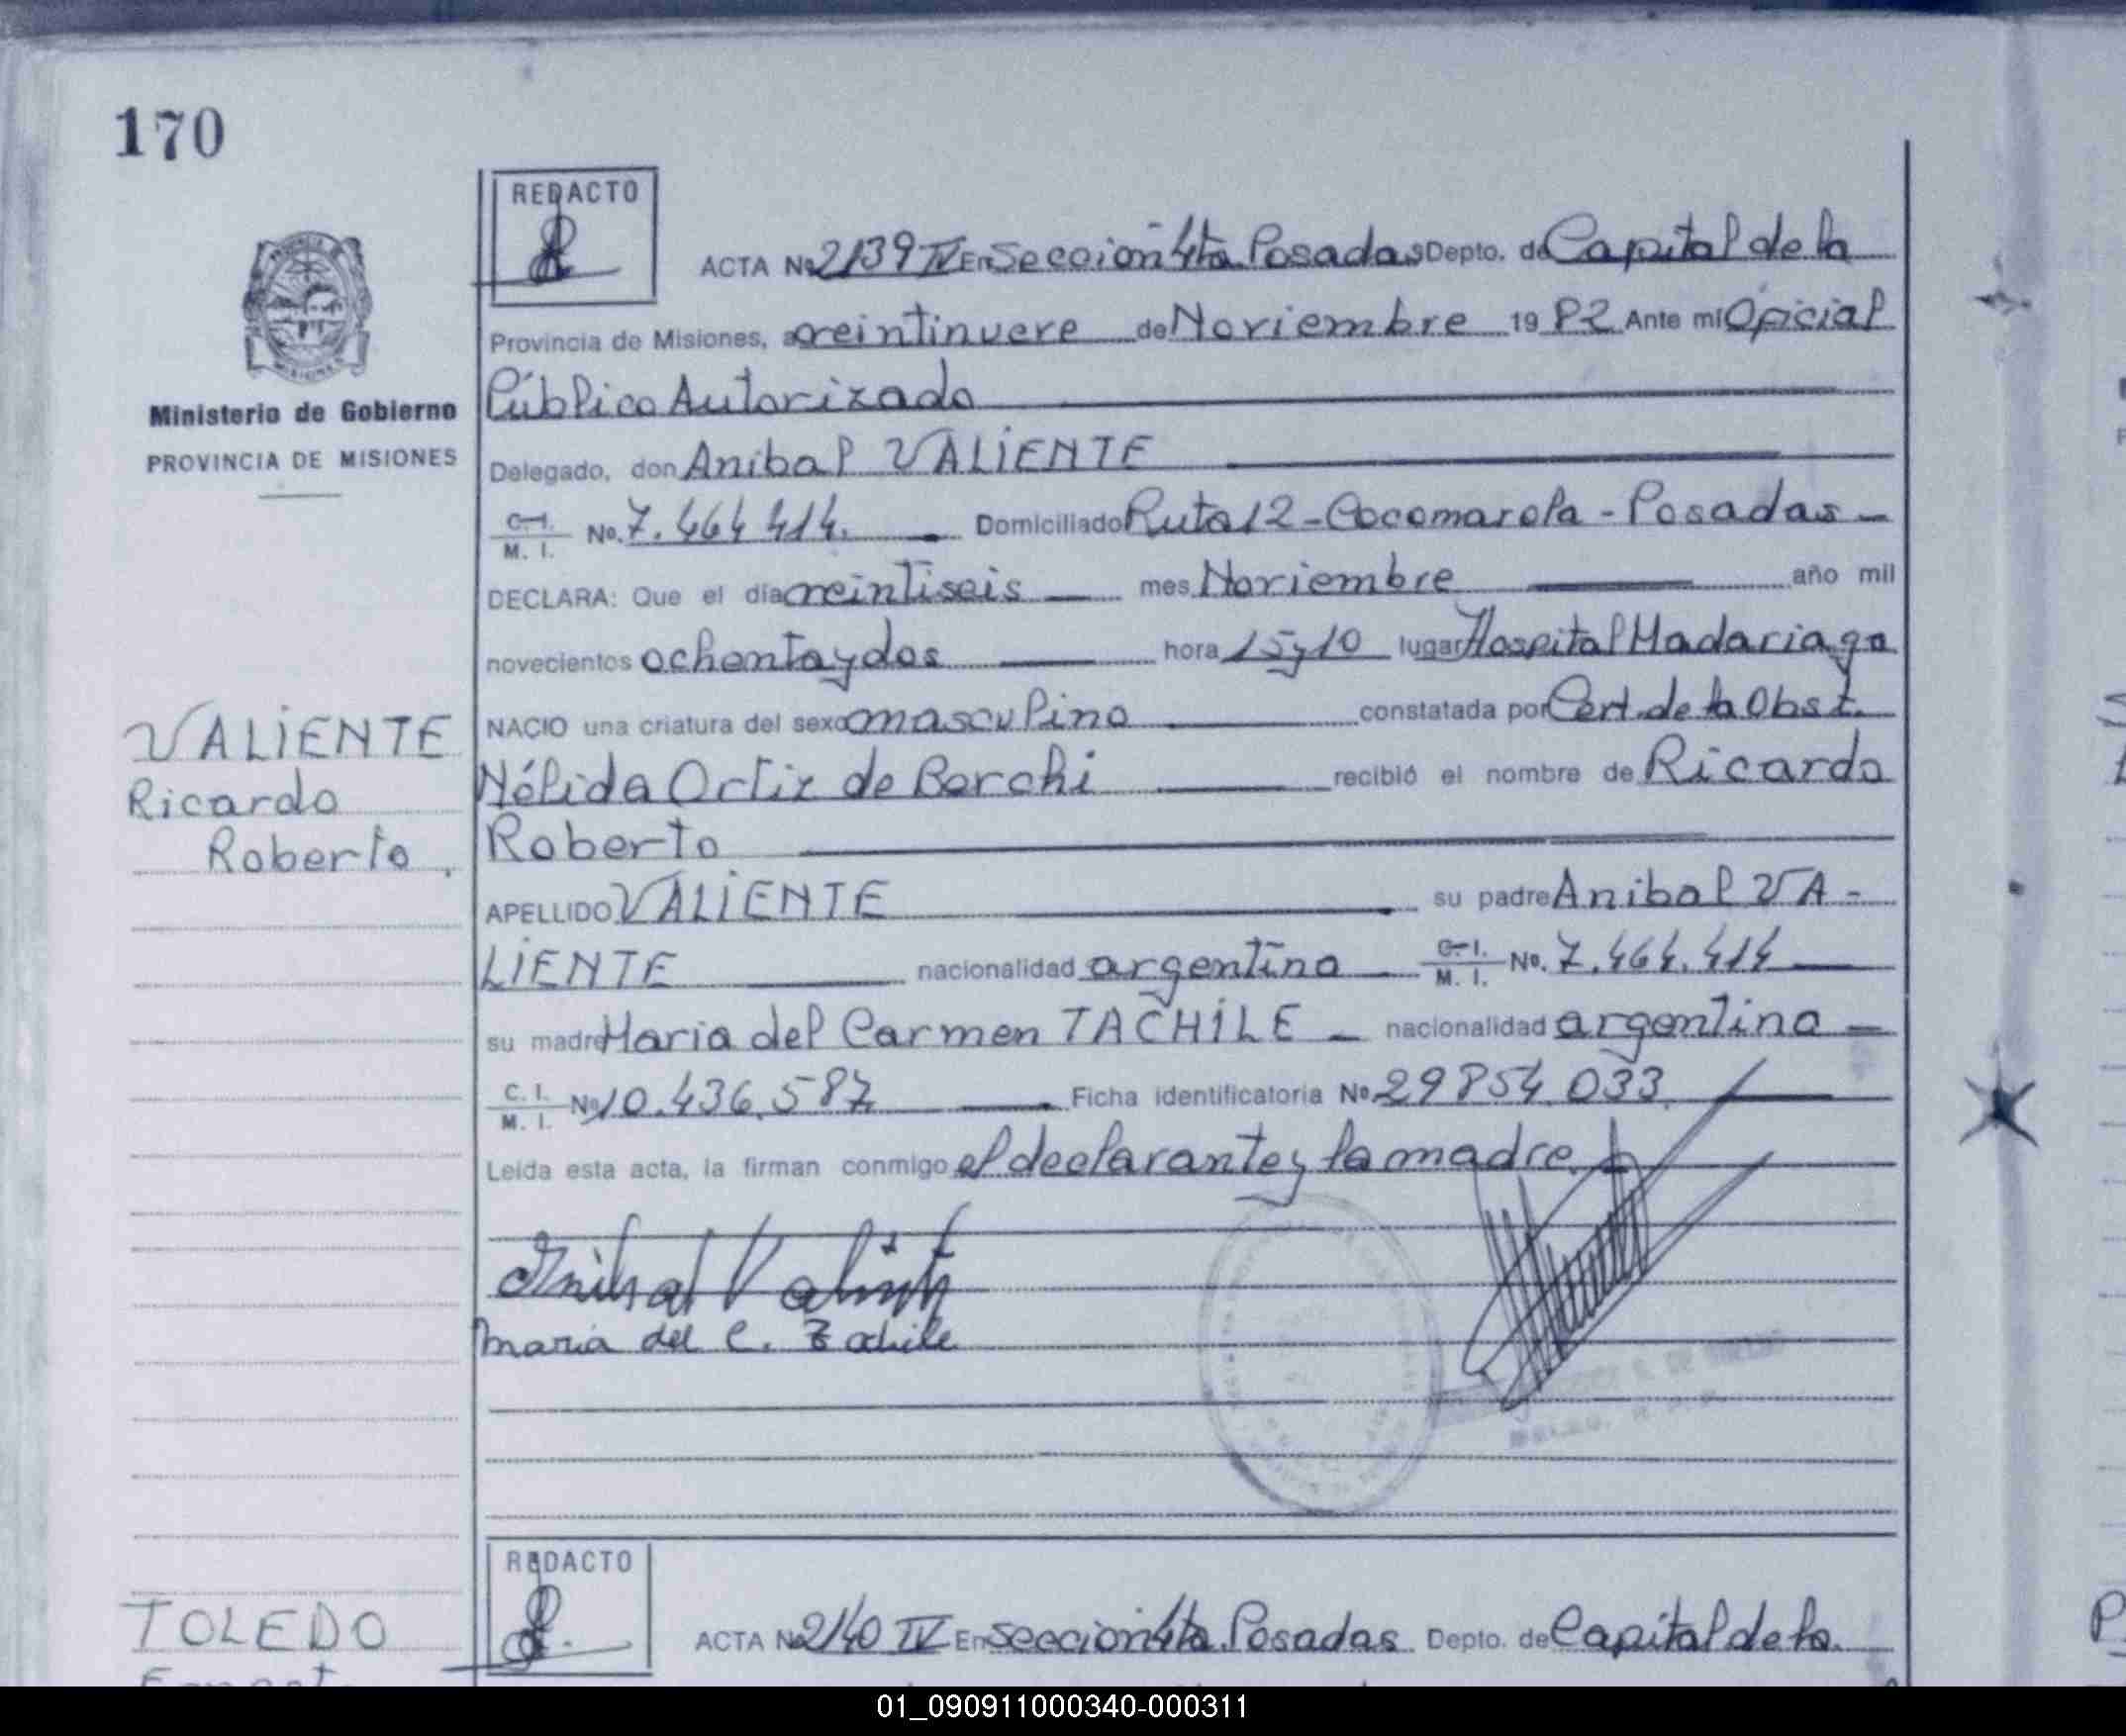 170
REDACTO
ACTA Nº 2139 IV En Sección 4ta Posadas Depto. de Capital de la
Provincia de Misiones, a veintinueve de Noviembre 19 82 Ante mí Oficial
Público Autorizado
Ministerio de Gobierno
PROVINCIA DE MISIONES
Delegado, don Anibal VALIENTE
C. I. M. I. No. 7.464 414. Domiciliado Ruta 12 - Cocomarola - Posadas -
DECLARA: Que el día veintiseis mes Noviembre año mil
novecientos ochenta y dos hora 15 y 10 lugar Hospital Madariaga
NACIO una criatura del sexo masculino constatada por Cert. de la Obst.
Nélida Ortiz de Borchi recibió el nombre de Ricardo
Roberto
VALIENTE
Ricardo
Roberto.
APELLIDO VALIENTE su padre Anibal VA-
LIENTE nacionalidad argentino C. I. M. I. No. 7.464.414
su madre Maria del Carmen TACHILE - nacionalidad argentina -
C. I. M. I. No 10.436.587 Ficha identificatoria No. 29854.033
Leída esta acta, la firman conmigo el declarante y la madre.
Anibal Valiente
Maria del C. Tachile
REDACTO
TOLEDO
ACTA No 2140 IV En Sección 4ta. Posadas Depto. de Capital de la
01_090911000340-000311